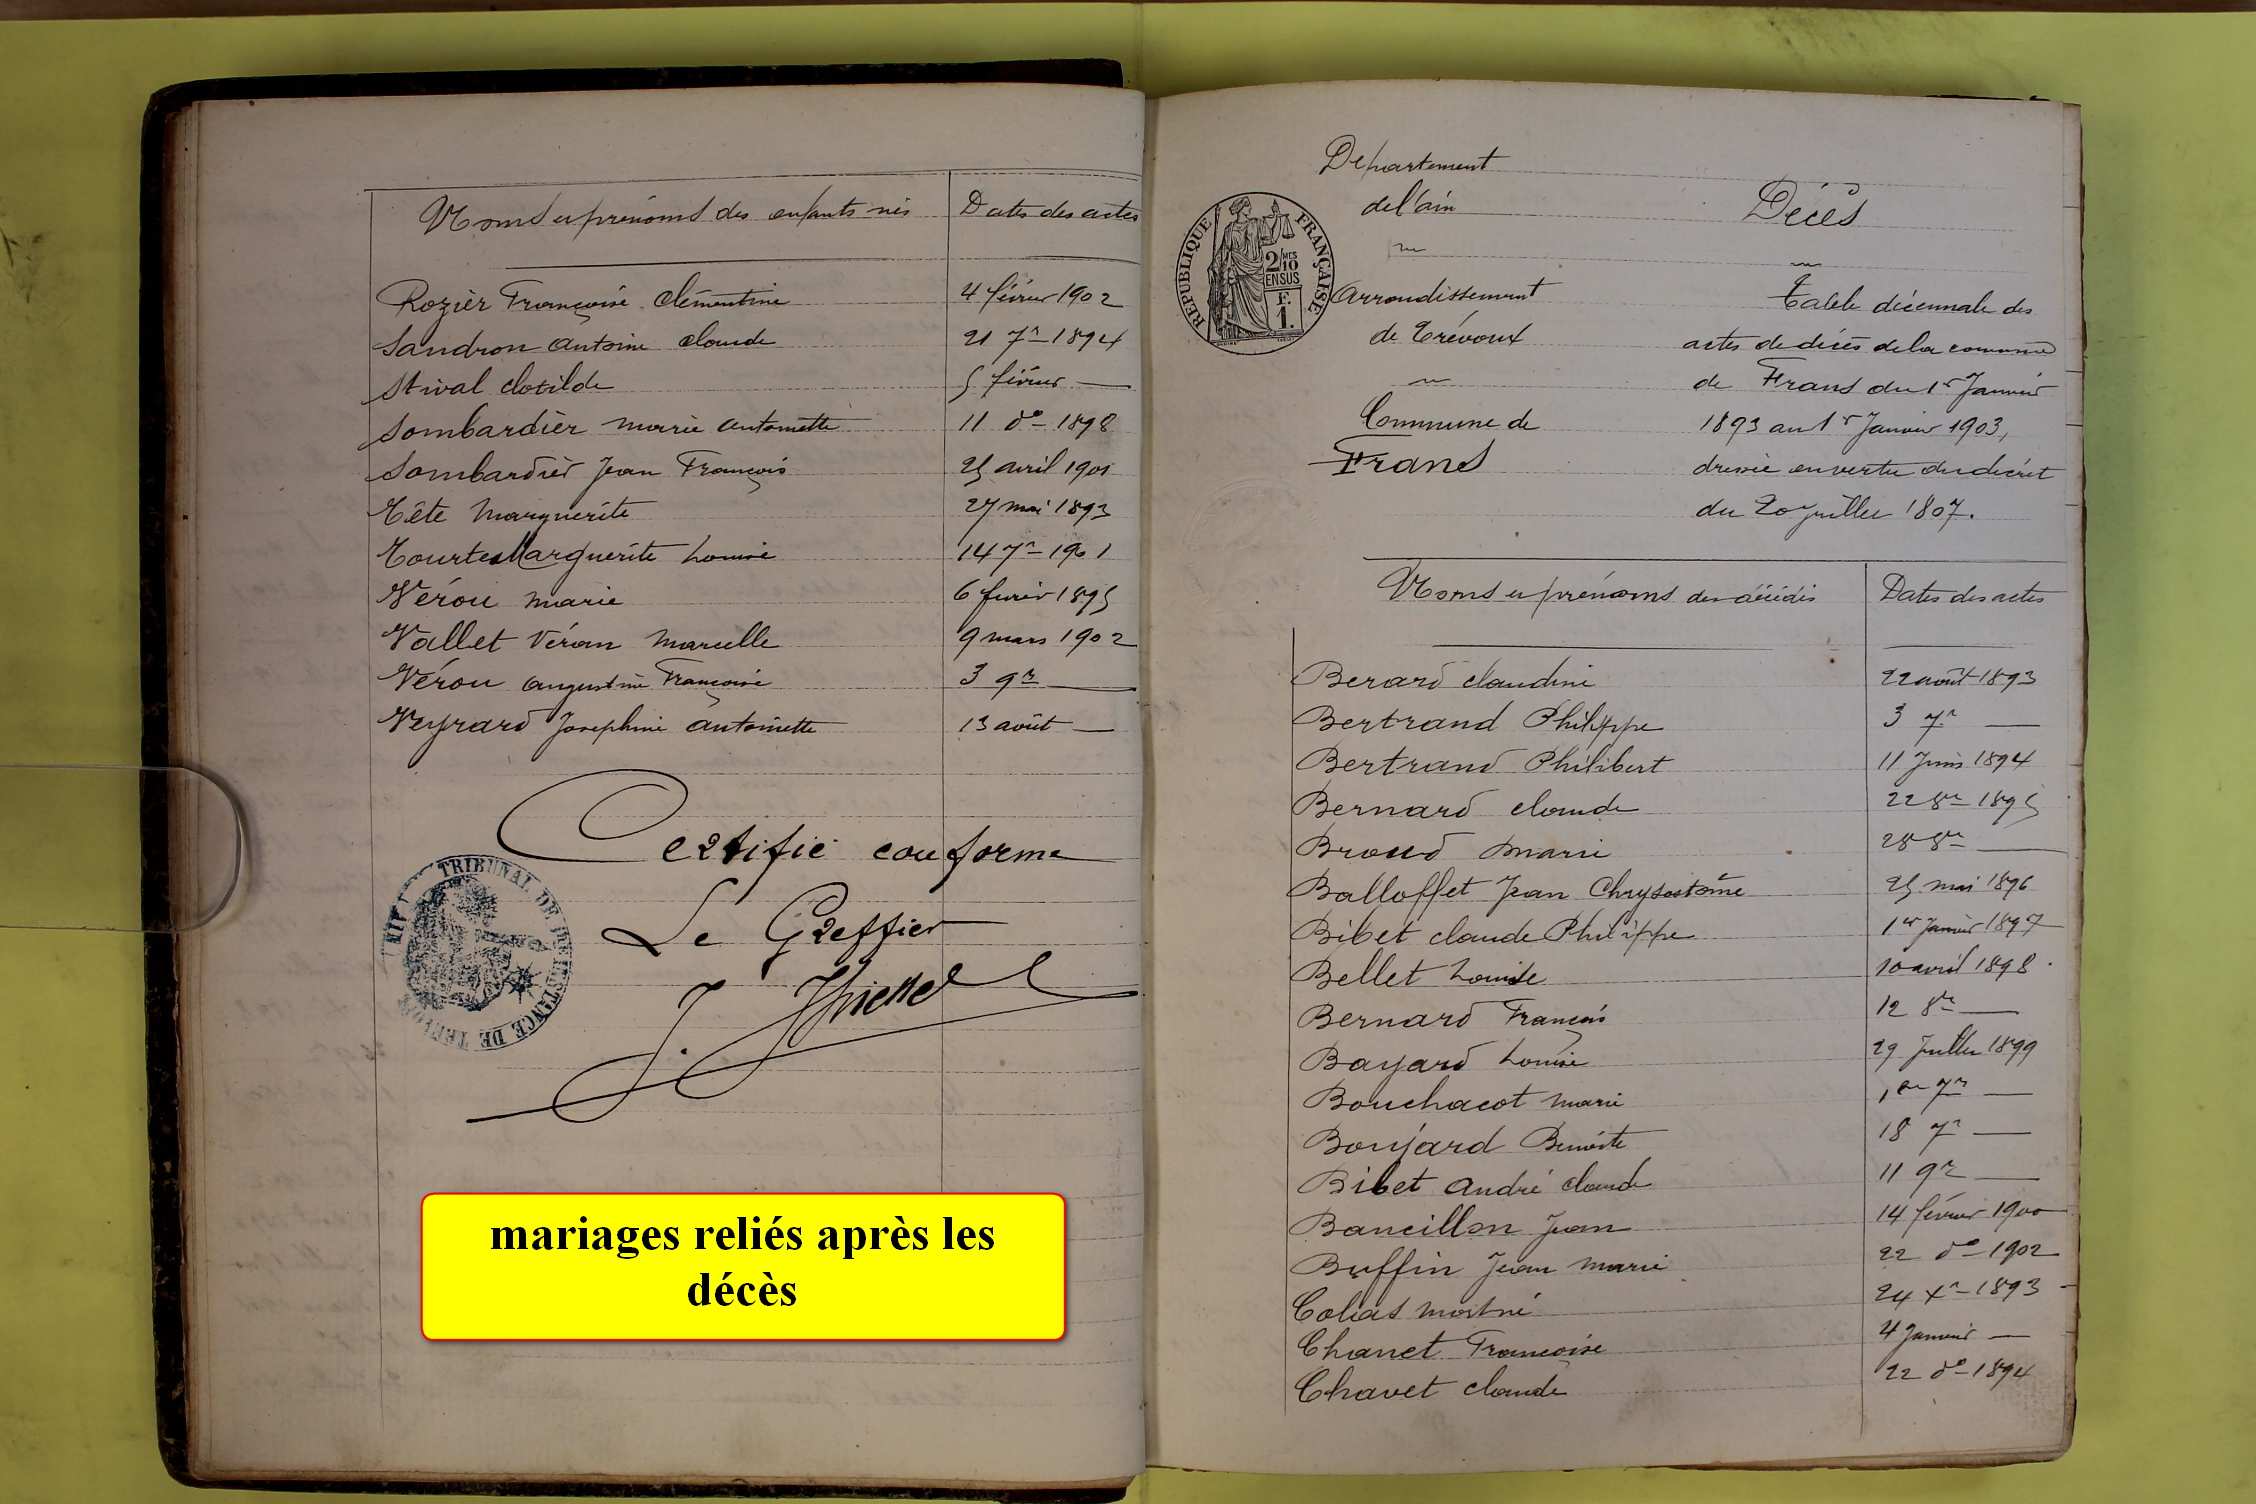 Noms et prénoms des enfants nés Dates des actes
Rozier Françoise Clémentine 4 février 1902
Sandron Antoine Claude 21 7re 1894
Stival Clotilde 5 février —
Sombardier Marie Antoinette 11 do 1898
Sombardier Jean François 25 avril 1901
Tête Marguerite 27 mai 1893
Tourte Marguerite Louise 14 7re 1901
Vérou Marie 6 février 1895
Vallet Véran Marcelle 9 mars 1902
Vérou Augustine Françoise 3 9re —
Veyrard Josephine Antoinette 13 août —
Certifié conforme
Le Greffier
TRIBUNAL DE 1RE INSTANCE DE TREVOUX
mariages reliés après les
décès
Département
de l'ain
Arrondissement
de Trévoux
Commune de
Frans
REPUBLIQUE FRANÇAISE
2/10 MES
EN SUS
F.
1.
Décès
Table décennale des
actes de décès de la commune
de Frans du 1er Janvier
1893 au 1er Janvier 1903,
dressée en vertu du décret
du 20 Juillet 1807.
Noms et prénoms des décédés Dates des actes
Berard Claudine 22 août 1893
Bertrand Philippe 3 7re —
Bertrand Philibert 11 Juin 1894
Bernard Claude 22 8re 1895
Broud Marie 28 8re —
Balloffet Jean Chrysostôme 25 mai 1896
Bibet Claude Philippe 1er Janvier 1897
Bellet Louise 10 avril 1898
Bernard François 12 8re —
Bayard Louise 29 Juillet 1899
Bouchacot Marie 1er 7re —
Boujard Benoîte 18 7re —
Bibet André Claude 11 9re —
Bancillon Jean 14 février 1900
Buffin Jean Marie 22 do 1902
Colias mort né 24 Xre 1893
Chanet Françoise 4 Janvier —
Chavet Claude 22 do 1894